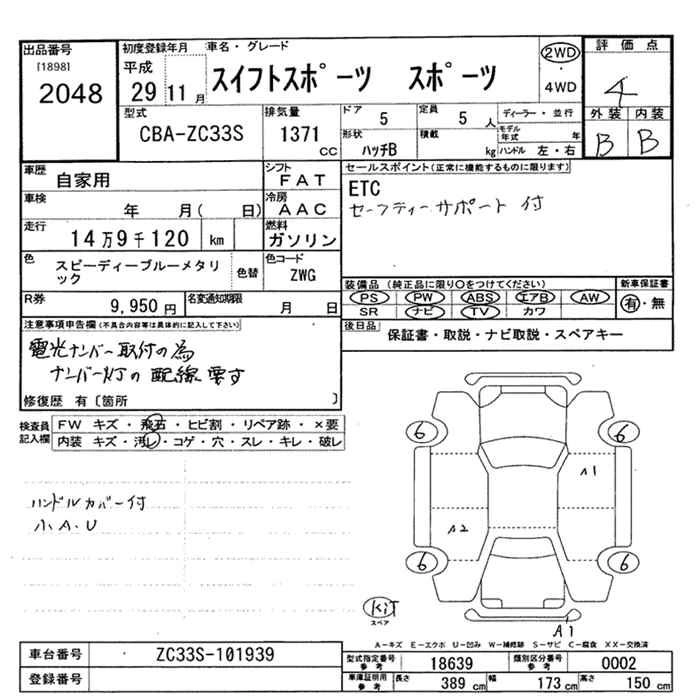 出品番号
[1898]
2048
初度登録年月
平成
29 11 月
車名・グレード
スイフトスポーツ スポーツ
2WD
・
4WD
評価点
4
外装 内装
B B
型式
CBA-ZC33S
排気量
1371
CC
ドア
5
定員
5 人
形状
ハッチB
積載
kg
ディーラー・並行
モデル年式 年
ハンドル 左・右
車歴
自家用
シフト
FAT
車検
年 月( 日)
冷房
AAC
走行
14万9千120 km
燃料
ガソリン
色
スピーディーブルーメタリ
ック
色替
色コード
ZWG
R券
9,950 円
名変通知期限
月 日
セールスポイント(正常に機能するものに限ります)
ETC
セーフティーサポート 付
装備品 (純正品に限り○をつけてください)
PS PW ABS エアB AW
SR ナビ TV カワ
新車保証書
有・無
後日品
保証書・取説・ナビ取説・スペアキー
注意事項申告欄(不具合内容等は具体的に記入して下さい)
電光ナンバー取付の為
ナンバー灯の配線要す
修復歴 有〔箇所 〕
検査員
記入欄
FW キズ・飛石・ヒビ割・リペア跡・×要
内装 キズ・汚レ・コゲ・穴・スレ・キレ・破レ
ハンドルカバー付
小.A.U
6
6
A1
A2
6
6
KiT
スペア
A1
A-キズ E-エクボ U-凹み W-補修跡 S-サビ C-腐食 XX-交換済
車台番号
ZC33S-101939
登録番号
型式指定番号
参考
18639
類別区分番号
参考
0002
車庫証明用
参考
長さ
389 cm
幅
173 cm
高さ
150 cm